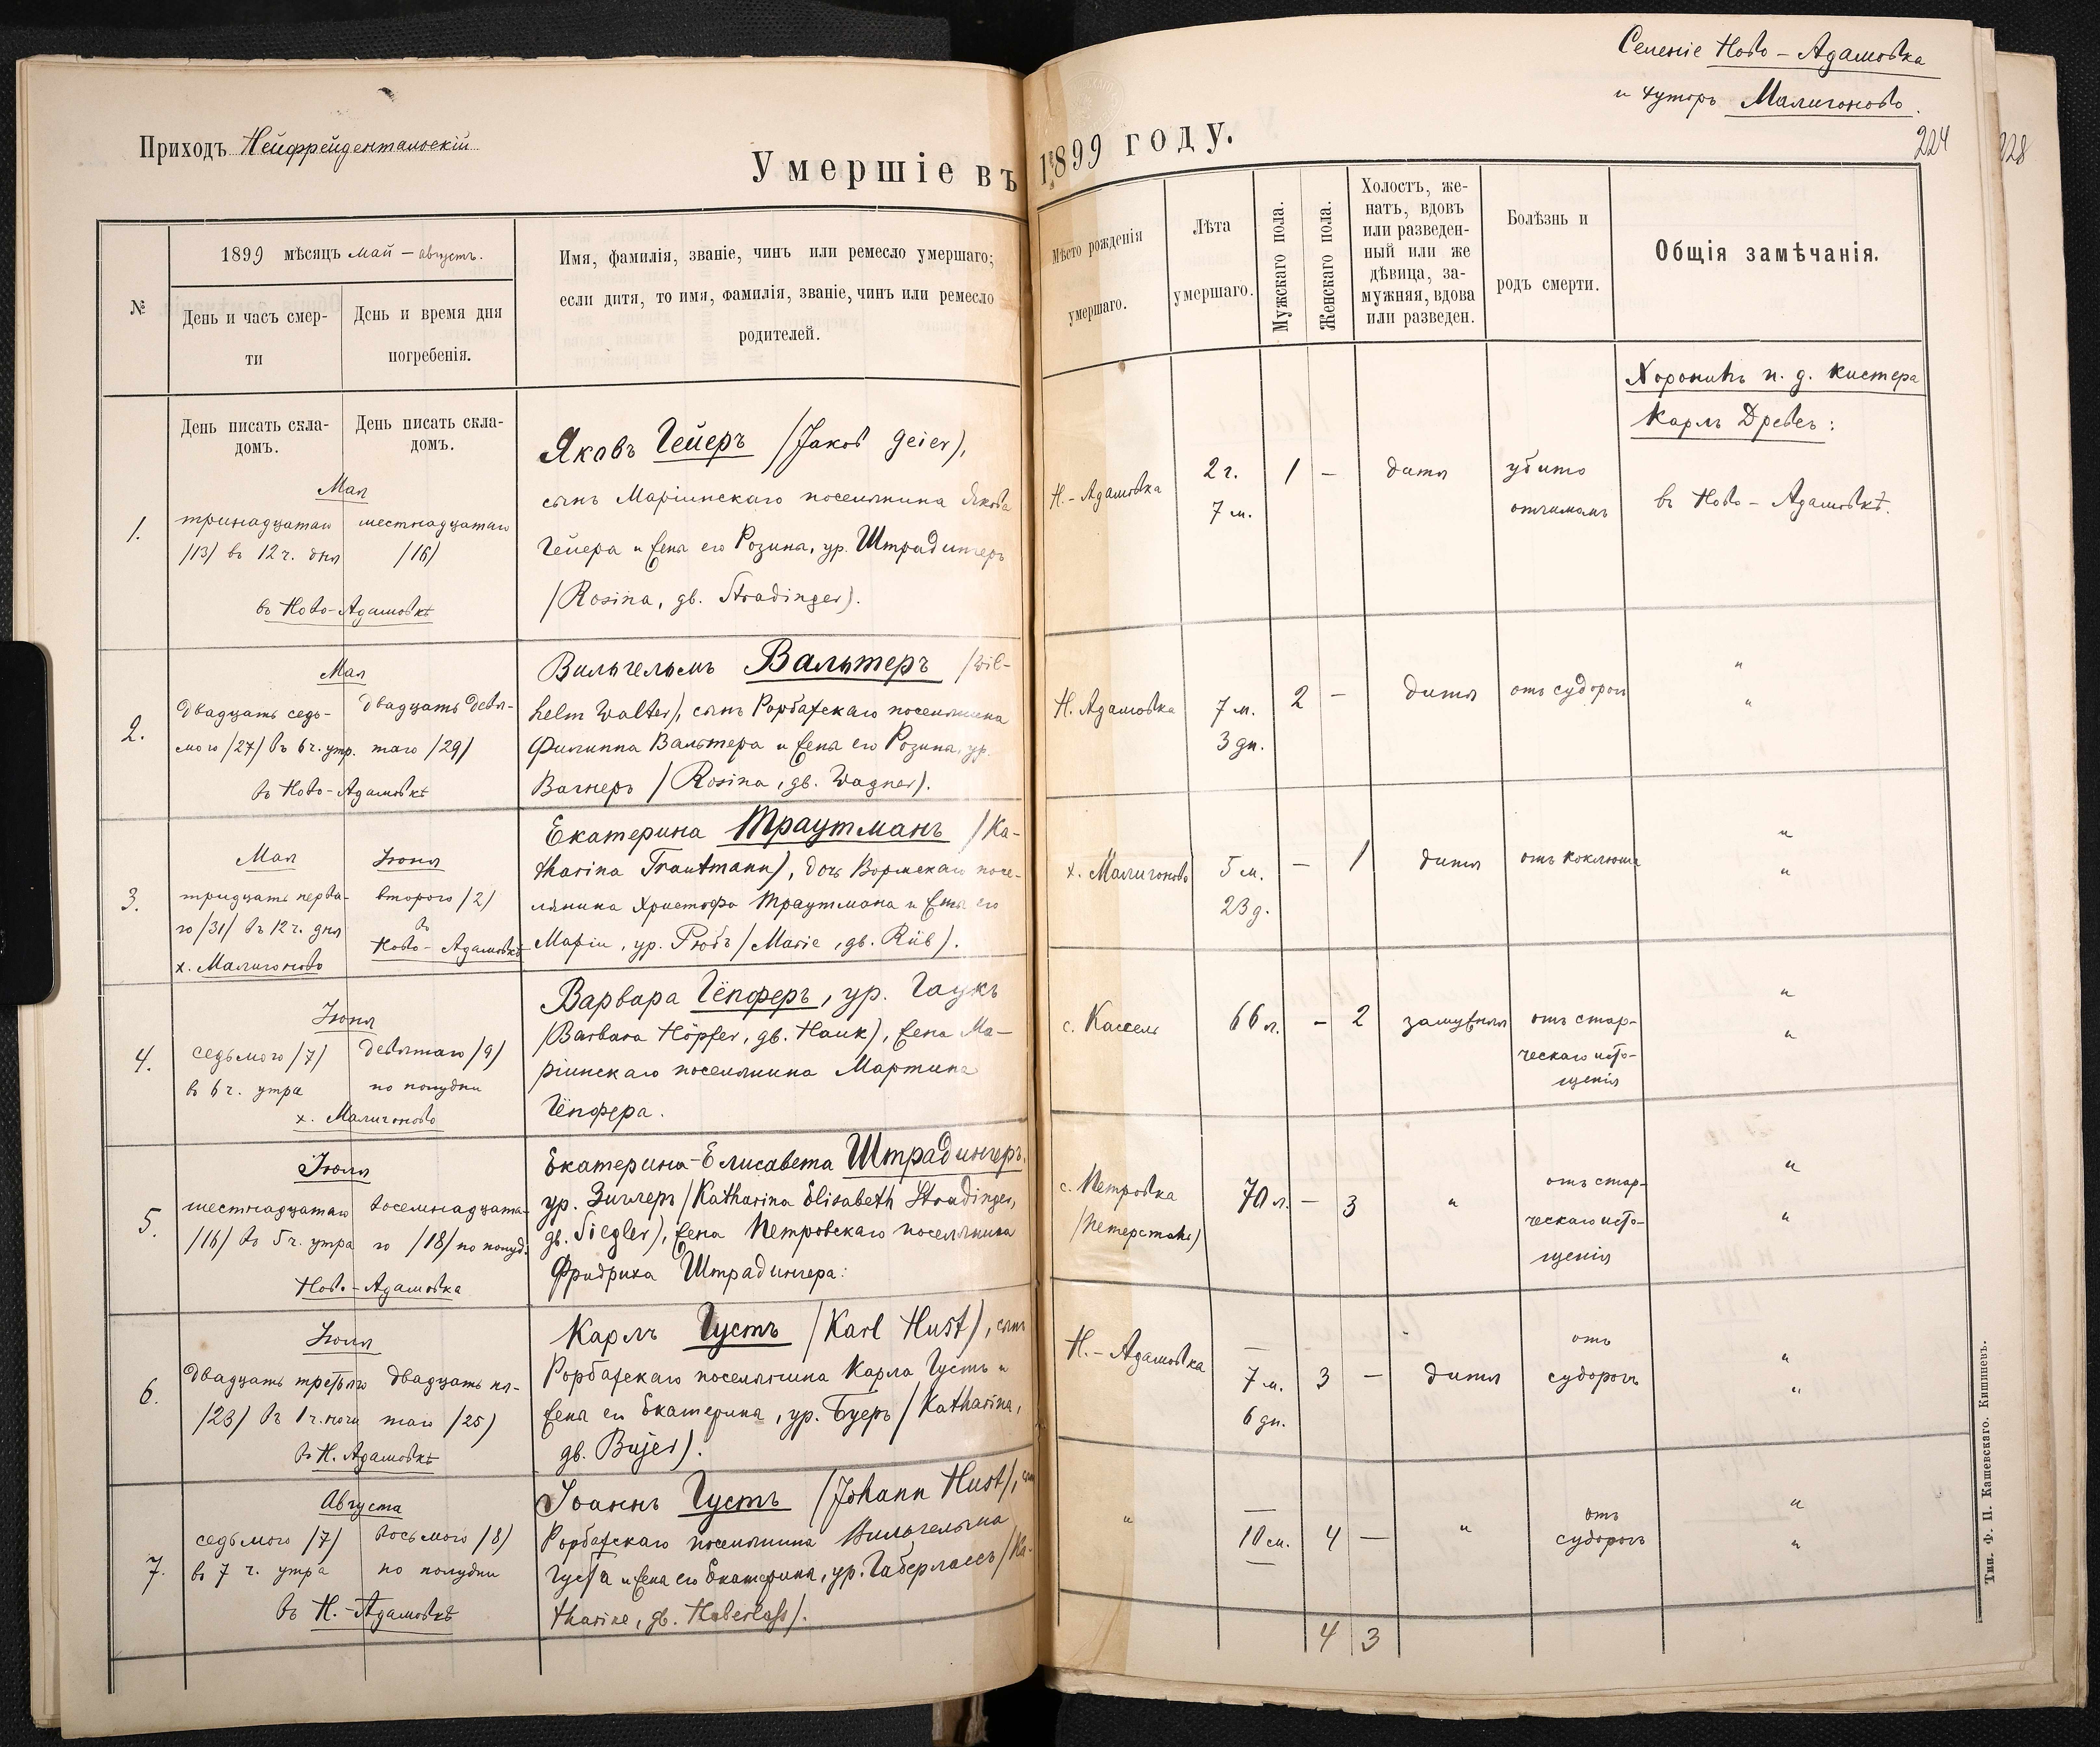 Селеніе Ново-Адамовка
и хуторъ Малигоново.
224
228
Приходъ Нейфрейдентальскій
Умершіе въ 1899 году.
№
1899 мѣсяцъ май – августъ.
День и часъ смер-
ти
День и время дня
погребенія.
Имя, фамилія, званіе, чинъ или ремесло умершаго;
если дитя, то имя, фамилія, званіе, чинъ или ремесло
родителей.
Мѣсто рожденія
умершаго.
Лѣта
умершаго.
Мужскаго пола.
Женскаго пола.
Холостъ, же-
натъ, вдовъ
или разведен-
ный или же
дѣвица, за-
мужняя, вдова
или разведен.
Болѣзнь и
родъ смерти.
Общія замѣчанія.
День писать скла-
домъ.
День писать скла-
домъ.
Хоронилъ и. д. кистера
Карлъ Древсъ:
1.
Мая
тринадцатаго
/13/ въ 12 ч. дня
шестнадцатаго
/16/
въ Ново-Адамовкѣ
Яковъ Гейеръ /Jakob Geier),
сынъ Маріинскаго поселянина Якова
Гейера и жена его Розина, ур. Штрадингеръ
/Rosina, gb. Stradinger).
Н.-Адамовка
2 г.
7 м.
1
–
дитя
убито
отчимомъ
въ Ново-Адамовкѣ.
2.
Мая
двадцать седь-
мого /27/ въ 6 ч. утр.
двадцать девя-
таго /29/
въ Ново-Адамовкѣ
Вильгельмъ Вальтеръ /Wil-
helm Walter), сынъ Рорбахскаго поселянина
Филиппа Вальтера и жена его Розина, ур.
Вагнеръ /Rosina, gb. Wagner).
Н. Адамовка
7 м.
3 дн.
2
–
дитя
отъ судорогъ
"
"
3.
Мая
тридцать перва-
го /31/ въ 12 ч. дня
х. Малигоново
Іюня
второго /2/
въ
Ново-Адамовкѣ
Екатерина Траутманъ /Ka-
tharina Trautmann), дочь Вормскаго посе-
лянина Христофа Траутмана и жена его
Маріи, ур. Рюбъ /Marie, gb. Rüb).
х. Малигоново
5 м.
23 д.
–
1
дитя
отъ коклюша
"
"
4.
Іюня
седьмого /7/
въ 6 ч. утра
девятаго /9/
по полудни
х. Малигоново
Варвара Гёпферъ, ур. Гаукъ
/Barbara Höpfer, gb. Hauk), жена Ма-
ріинскаго поселянина Мартина
Гёпфера.
с. Кассель
66 л.
–
2
замужняя
отъ стар-
ческаго исто-
щенія
"
"
5.
Іюля
шестнадцатаго
/16/ въ 5 ч. утра
восемнадцата-
го /18/ по полуд.
Ново-Адамовка
Екатерина-Елисавета Штрадингеръ,
ур. Зиглеръ /Katharina Elisabeth Stradinger,
gb. Siegler), жена Петровскаго поселянина
Фридриха Штрадингера:
с. Петровка
/Петерсталь)
70 л.
–
3
"
отъ стар-
ческаго исто-
щенія
"
"
6.
Іюля
двадцать третьяго
/23/ въ 1 ч. ночи
двадцать пя-
таго /25/
въ Н. Адамовкѣ
Карлъ Густъ /Karl Hust), сынъ
Рорбахскаго поселянина Карла Густъ и
жена его Екатерина, ур. Буеръ /Katharina,
gb. Bujer).
Н.-Адамовка
–
7 м.
6 дн.
3
–
дитя
отъ
судорогъ
"
"
7.
Августа
седьмого /7/
въ 7 ч. утра
восьмого /8/
по полудни
въ Н.-Адамовкѣ
Іоаннъ Густъ /Johann Hust), сынъ
Рорбахскаго поселянина Вильгельма
Густа и жена его Екатерина, ур. Габерлассъ /Ka-
tharine, gb. Haberlaß).
"
–
10 м.
–
4
–
"
отъ
судорогъ
"
"
4
3
Тип. Ф. П. Кашевскаго. Кишиневъ.